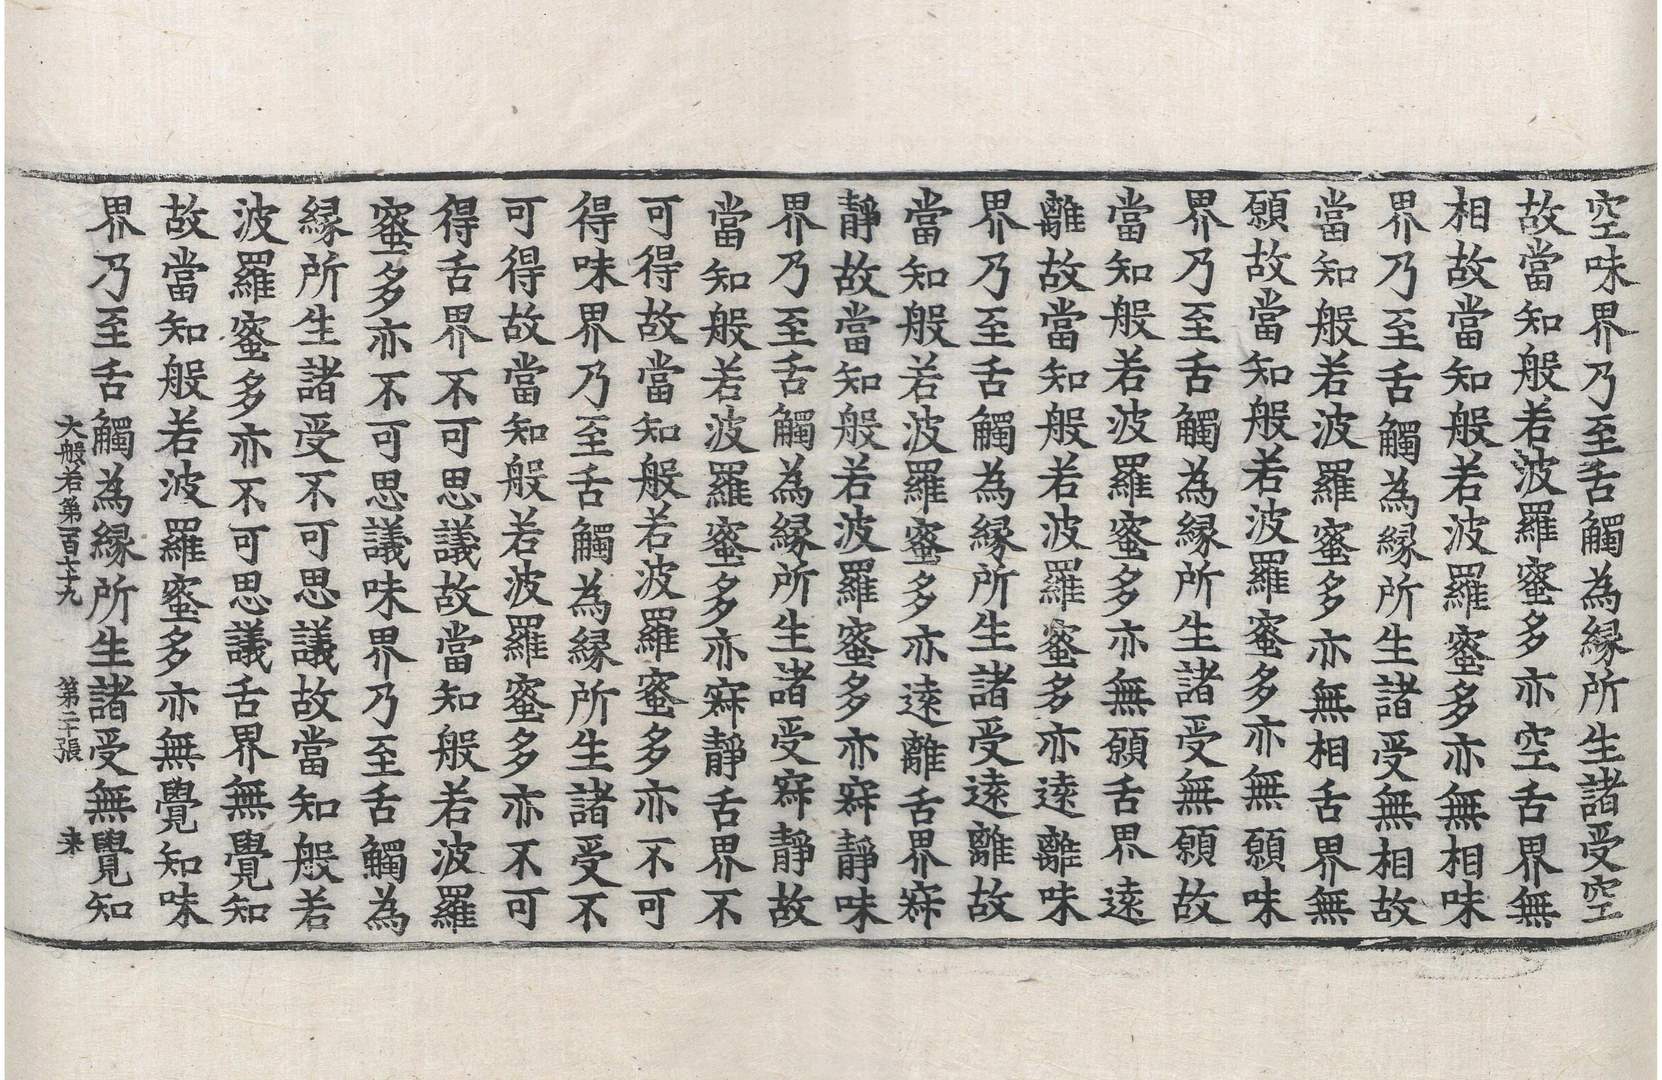 空味界乃至舌觸為縁所生諸受空
故當知般若波羅蜜多亦空舌界無
相故當知般若波羅蜜多亦無相味
界乃至舌觸為縁所生諸受無相故
當知般若波羅蜜多亦無相舌界無
願故當知般若波羅蜜多亦無願味
界乃至舌觸為縁所生諸受無願故
當知般若波羅蜜多亦無願舌界遠
離故當知般若波羅蜜多亦遠離味
界乃至舌觸為縁所生諸受遠離故
當知般若波羅蜜多亦遠離舌界寂
靜故當知般若波羅蜜多亦寂靜味
界乃至舌觸為縁所生諸受寂靜故
當知般若波羅蜜多亦寂靜舌界不
可得故當知般若波羅蜜多亦不可
得味界乃至舌觸為縁所生諸受不
可得故當知般若波羅蜜多亦不可
得舌界不可思議故當知般若波羅
蜜多亦不可思議味界乃至舌觸為
縁所生諸受不可思議故當知般若
波羅蜜多亦不可思議舌界無覺知
故當知般若波羅蜜多亦無覺知味
界乃至舌觸為縁所生諸受無覺知
大般若第百六十九 第二十張 来